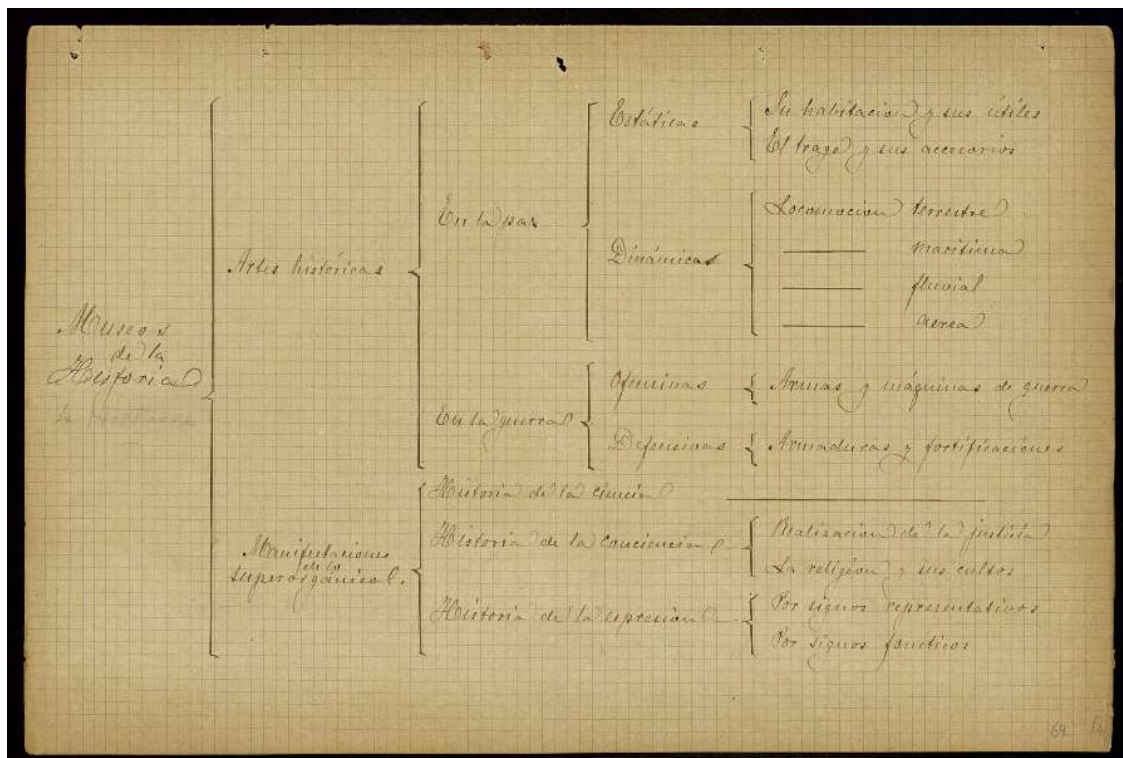 Museos
de la
Historia
la
Artes históricas
En la paz
Estáticas
Su habitacion y sus útiles
El trage y sus accesorios
Dinámicas
Locomocion terrestre
——— maritima
——— fluvial
——— aerea
En la guerra
Ofensivas
Armas y máquinas de guerra
Defensivas
Armaduras y fortificaciones
Manifestaciones
de lo
superorgánico.
Historia de la ciencia
Historia de la conciencia
Realizacion de la justicia
La religion y sus cultos
Historia de la espresion
Por signos representativos
Por signos fonéticos
64